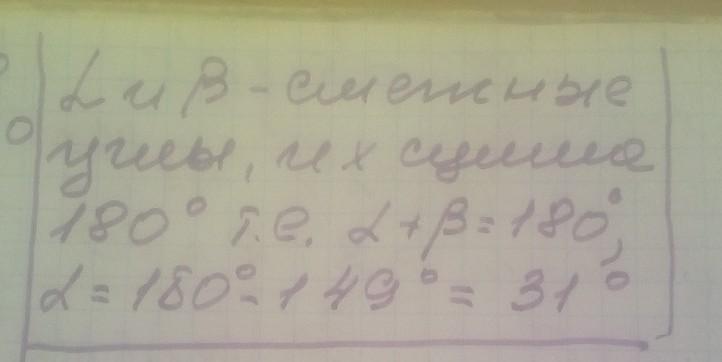 α и β - смежные
углы, их сумма
180° т.е. α + β = 180°,
α = 180° - 149° = 31°